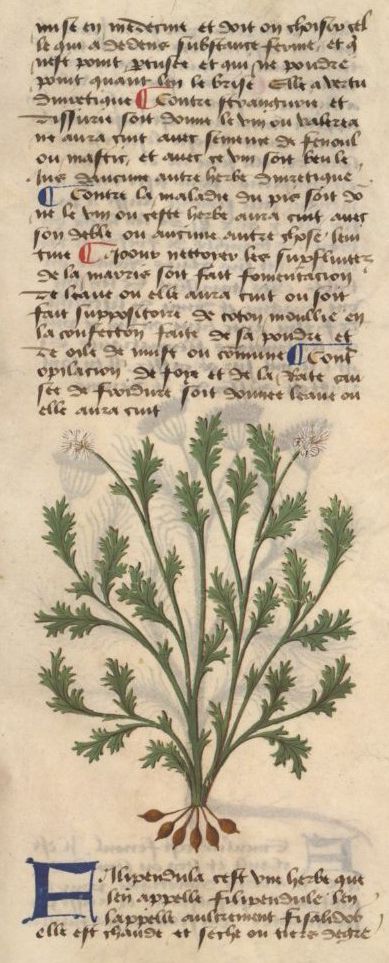 mise en medecine et doit on choisir cel
le qui a dedens substance ferme et q̃
nest point percusee et qui ne pouldre
point quant len le brise Elle a vertu
diuretique ¶ Contre stranguirie et
dissurie soit donne le vin ou valerea
ne aura cuit auec semence de fenoul
ou mastic, et auec ce vin soit beu le
ius daucune autre herbe diuretique
¶ Contre la maladie du pis soit do
ne le vin ou ceste herbe aura cuit auec
son deble ou aucune autre chose leni
tiue ¶ Et pour nettoyer les supfluitez
de la mavris soit fait fomentacion
de leaue ou elle aura cuit ou soit
fait suppositoire de coton moullie en
la confection faite de sa pouldre et
de oile de musc ou comune ¶ Cont
opilacion de foye et de la Rate cau
see de froidure soit donnee leaue ou
elle aura cuit
Filipendula cest vne herbe que
len appelle filipendule len
lappelle aultrement fisalidos
elle est chaude et seche ou tiers degre